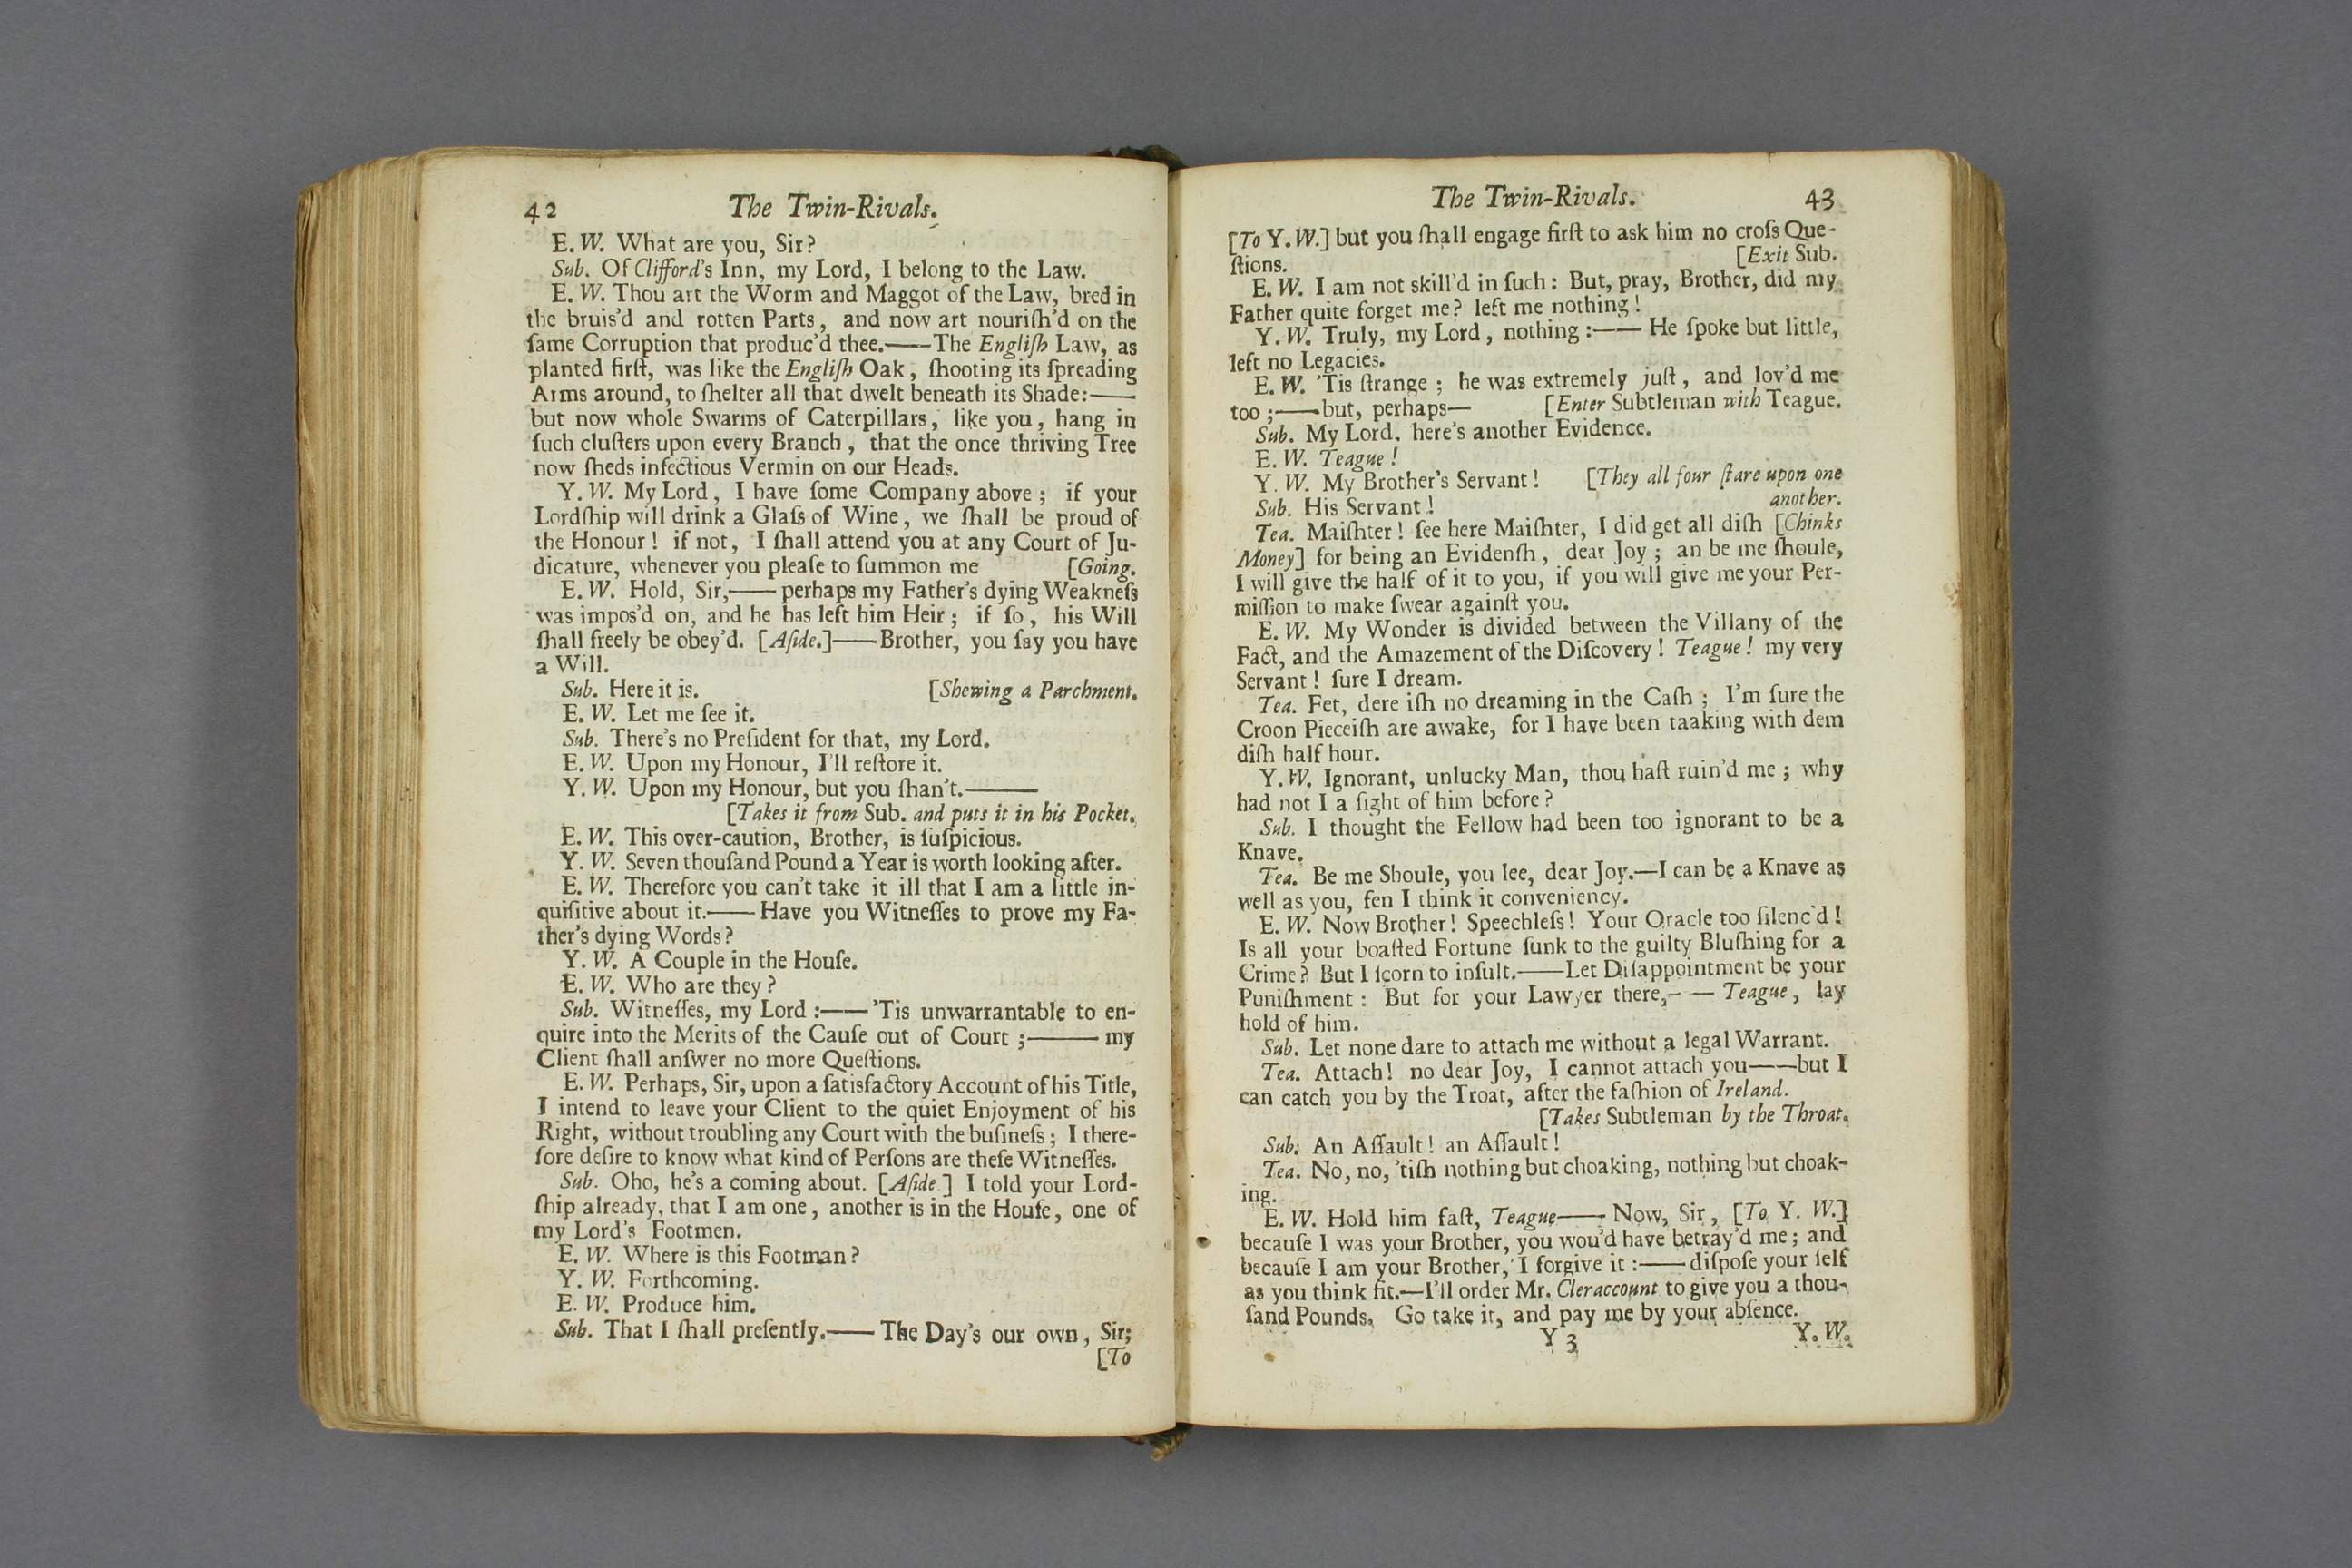 42 The Twin-Rivals.
E. W. What are you, Sir?
Sub. Of Clifford's Inn, my Lord, I belong to the Law.
E. W. Thou art the Worm and Maggot of the Law, bred in
the bruis'd and rotten Parts, and now art nouriſh'd on the
ſame Corruption that produc'd thee.——The Engliſh Law, as
planted firſt, was like the Engliſh Oak, ſhooting its ſpreading
Arms around, to ſhelter all that dwelt beneath its Shade:——
but now whole Swarms of Caterpillars, like you, hang in
ſuch cluſters upon every Branch, that the once thriving Tree
now ſheds infectious Vermin on our Heads.
Y. W. My Lord, I have ſome Company above; if your
Lordſhip will drink a Glaſs of Wine, we ſhall be proud of
the Honour! if not, I ſhall attend you at any Court of Ju-
dicature, whenever you pleaſe to ſummon me [Going.
E. W. Hold, Sir,——perhaps my Father's dying Weakneſs
was impos'd on, and he has left him Heir; if ſo, his Will
ſhall freely be obey'd. [Aſide.]——Brother, you ſay you have
a Will.
Sub. Here it is. [Shewing a Parchment.
E. W. Let me ſee it.
Sub. There's no Preſident for that, my Lord.
E. W. Upon my Honour, I'll reſtore it.
Y. W. Upon my Honour, but you ſhan't.———
[Takes it from Sub. and puts it in his Pocket.
E. W. This over-caution, Brother, is ſuſpicious.
Y. W. Seven thouſand Pound a Year is worth looking after.
E. W. Therefore you can't take it ill that I am a little in-
quiſitive about it.——Have you Witneſſes to prove my Fa-
ther's dying Words?
Y. W. A Couple in the Houſe.
E. W. Who are they?
Sub. Witneſſes, my Lord:——'Tis unwarrantable to en-
quire into the Merits of the Cauſe out of Court;———my
Client ſhall anſwer no more Queſtions.
E. W. Perhaps, Sir, upon a ſatisfactory Account of his Title,
I intend to leave your Client to the quiet Enjoyment of his
Right, without troubling any Court with the buſineſs; I there-
fore deſire to know what kind of Perſons are theſe Witneſſes.
Sub. Oho, he's a coming about. [Aſide.] I told your Lord-
ſhip already, that I am one, another is in the Houſe, one of
my Lord's Footmen.
E. W. Where is this Footman?
Y. W. Forthcoming.
E. W. Produce him.
Sub. That I ſhall preſently.——The Day's our own, Sir;
[To
The Twin-Rivals. 43
[To Y. W.] but you ſhall engage firſt to ask him no croſs Que-
ſtions. [Exit Sub.
E. W. I am not skill'd in ſuch: But, pray, Brother, did my
Father quite forget me? left me nothing!
Y. W. Truly, my Lord, nothing:——He ſpoke but little,
left no Legacies.
E. W. 'Tis ſtrange; he was extremely juſt, and lov'd me
too;——but, perhaps— [Enter Subtleman with Teague.
Sub. My Lord, here's another Evidence.
E. W. Teague!
Y. W. My Brother's Servant! [They all four ſtare upon one
Sub. His Servant! another.
Tea. Maiſhter! ſee here Maiſhter, I did get all diſh [Chinks
Money] for being an Evidenſh, dear Joy; an be me ſhoule,
I will give the half of it to you, if you will give me your Per-
miſſion to make ſwear againſt you.
E. W. My Wonder is divided between the Villany of the
Fact, and the Amazement of the Diſcovery! Teague! my very
Servant! ſure I dream.
Tea. Fet, dere iſh no dreaming in the Caſh; I'm ſure the
Croon Pieceiſh are awake, for I have been taaking with dem
diſh half hour.
Y. W. Ignorant, unlucky Man, thou haſt ruin'd me; why
had not I a ſight of him before?
Sub. I thought the Fellow had been too ignorant to be a
Knave.
Tea. Be me Shoule, you lee, dear Joy.—I can be a Knave as
well as you, fen I think it conveniency.
E. W. Now Brother! Speechleſs! Your Oracle too ſilenc'd!
Is all your boaſted Fortune ſunk to the guilty Bluſhing for a
Crime? But I ſcorn to inſult.——Let Diſappointment be your
Puniſhment: But for your Lawyer there,——Teague, lay
hold of him.
Sub. Let none dare to attach me without a legal Warrant.
Tea. Attach! no dear Joy, I cannot attach you——but I
can catch you by the Troat, after the faſhion of Ireland.
[Takes Subtleman by the Throat.
Sub. An Aſſault! an Aſſault!
Tea. No, no, 'tiſh nothing but choaking, nothing but choak-
ing.
E. W. Hold him faſt, Teague——Now, Sir, [To Y. W.]
becauſe I was your Brother, you wou'd have betray'd me; and
becauſe I am your Brother, I forgive it:——diſpoſe your ſelf
as you think fit.—I'll order Mr. Clearaccount to give you a thou-
ſand Pounds. Go take it, and pay me by your abſence.
Y 3 Y. W.